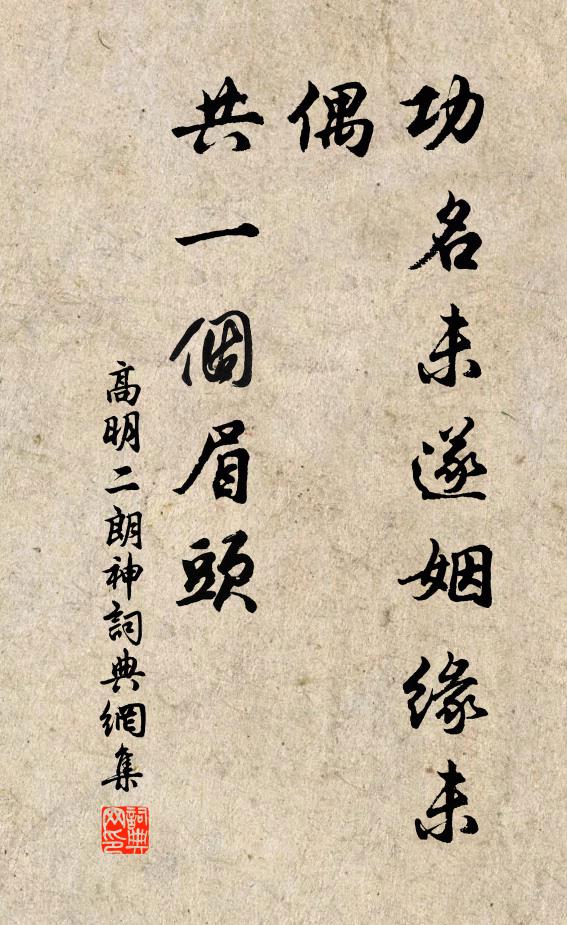 功名未遂姻缘未
偶
共一個眉頭
高明二朗神詞典網集
詞典
网印